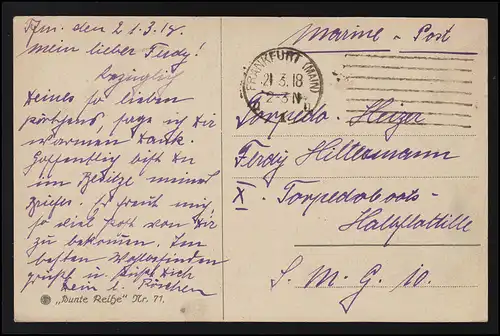 Ffm. den 21.3.18.
mein lieber Ferdy!
Bezüglich
Deines so lieben
Kärtchens, sage ich Dir
warmen Dank.
Hoffentlich bist Du
im Besitze meines
Briefes. Es freut mich
so viel Post von Dir
zu bekommen. Im
besten Wohlbefinden
grüßt u. küßt Dich
Dein l. Röschen
„Bunte Reihe" Nr. 71.
Marine - Post
FRANKFURT (MAIN)
21.3.18
2-3 N
Torpedo-Heizer
Ferdy Hiltermann
X. Torpedoboots-
Halbflottille
S. M. G. 10.